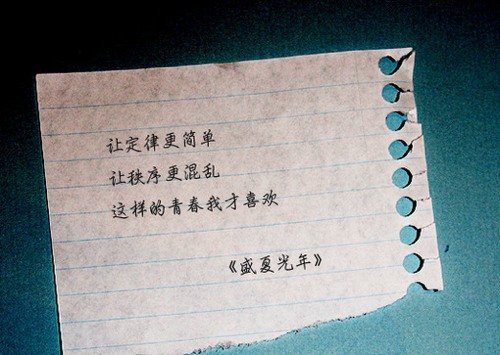 让定律更简单
让秩序更混乱
这样的青春我才喜欢
《盛夏光年》